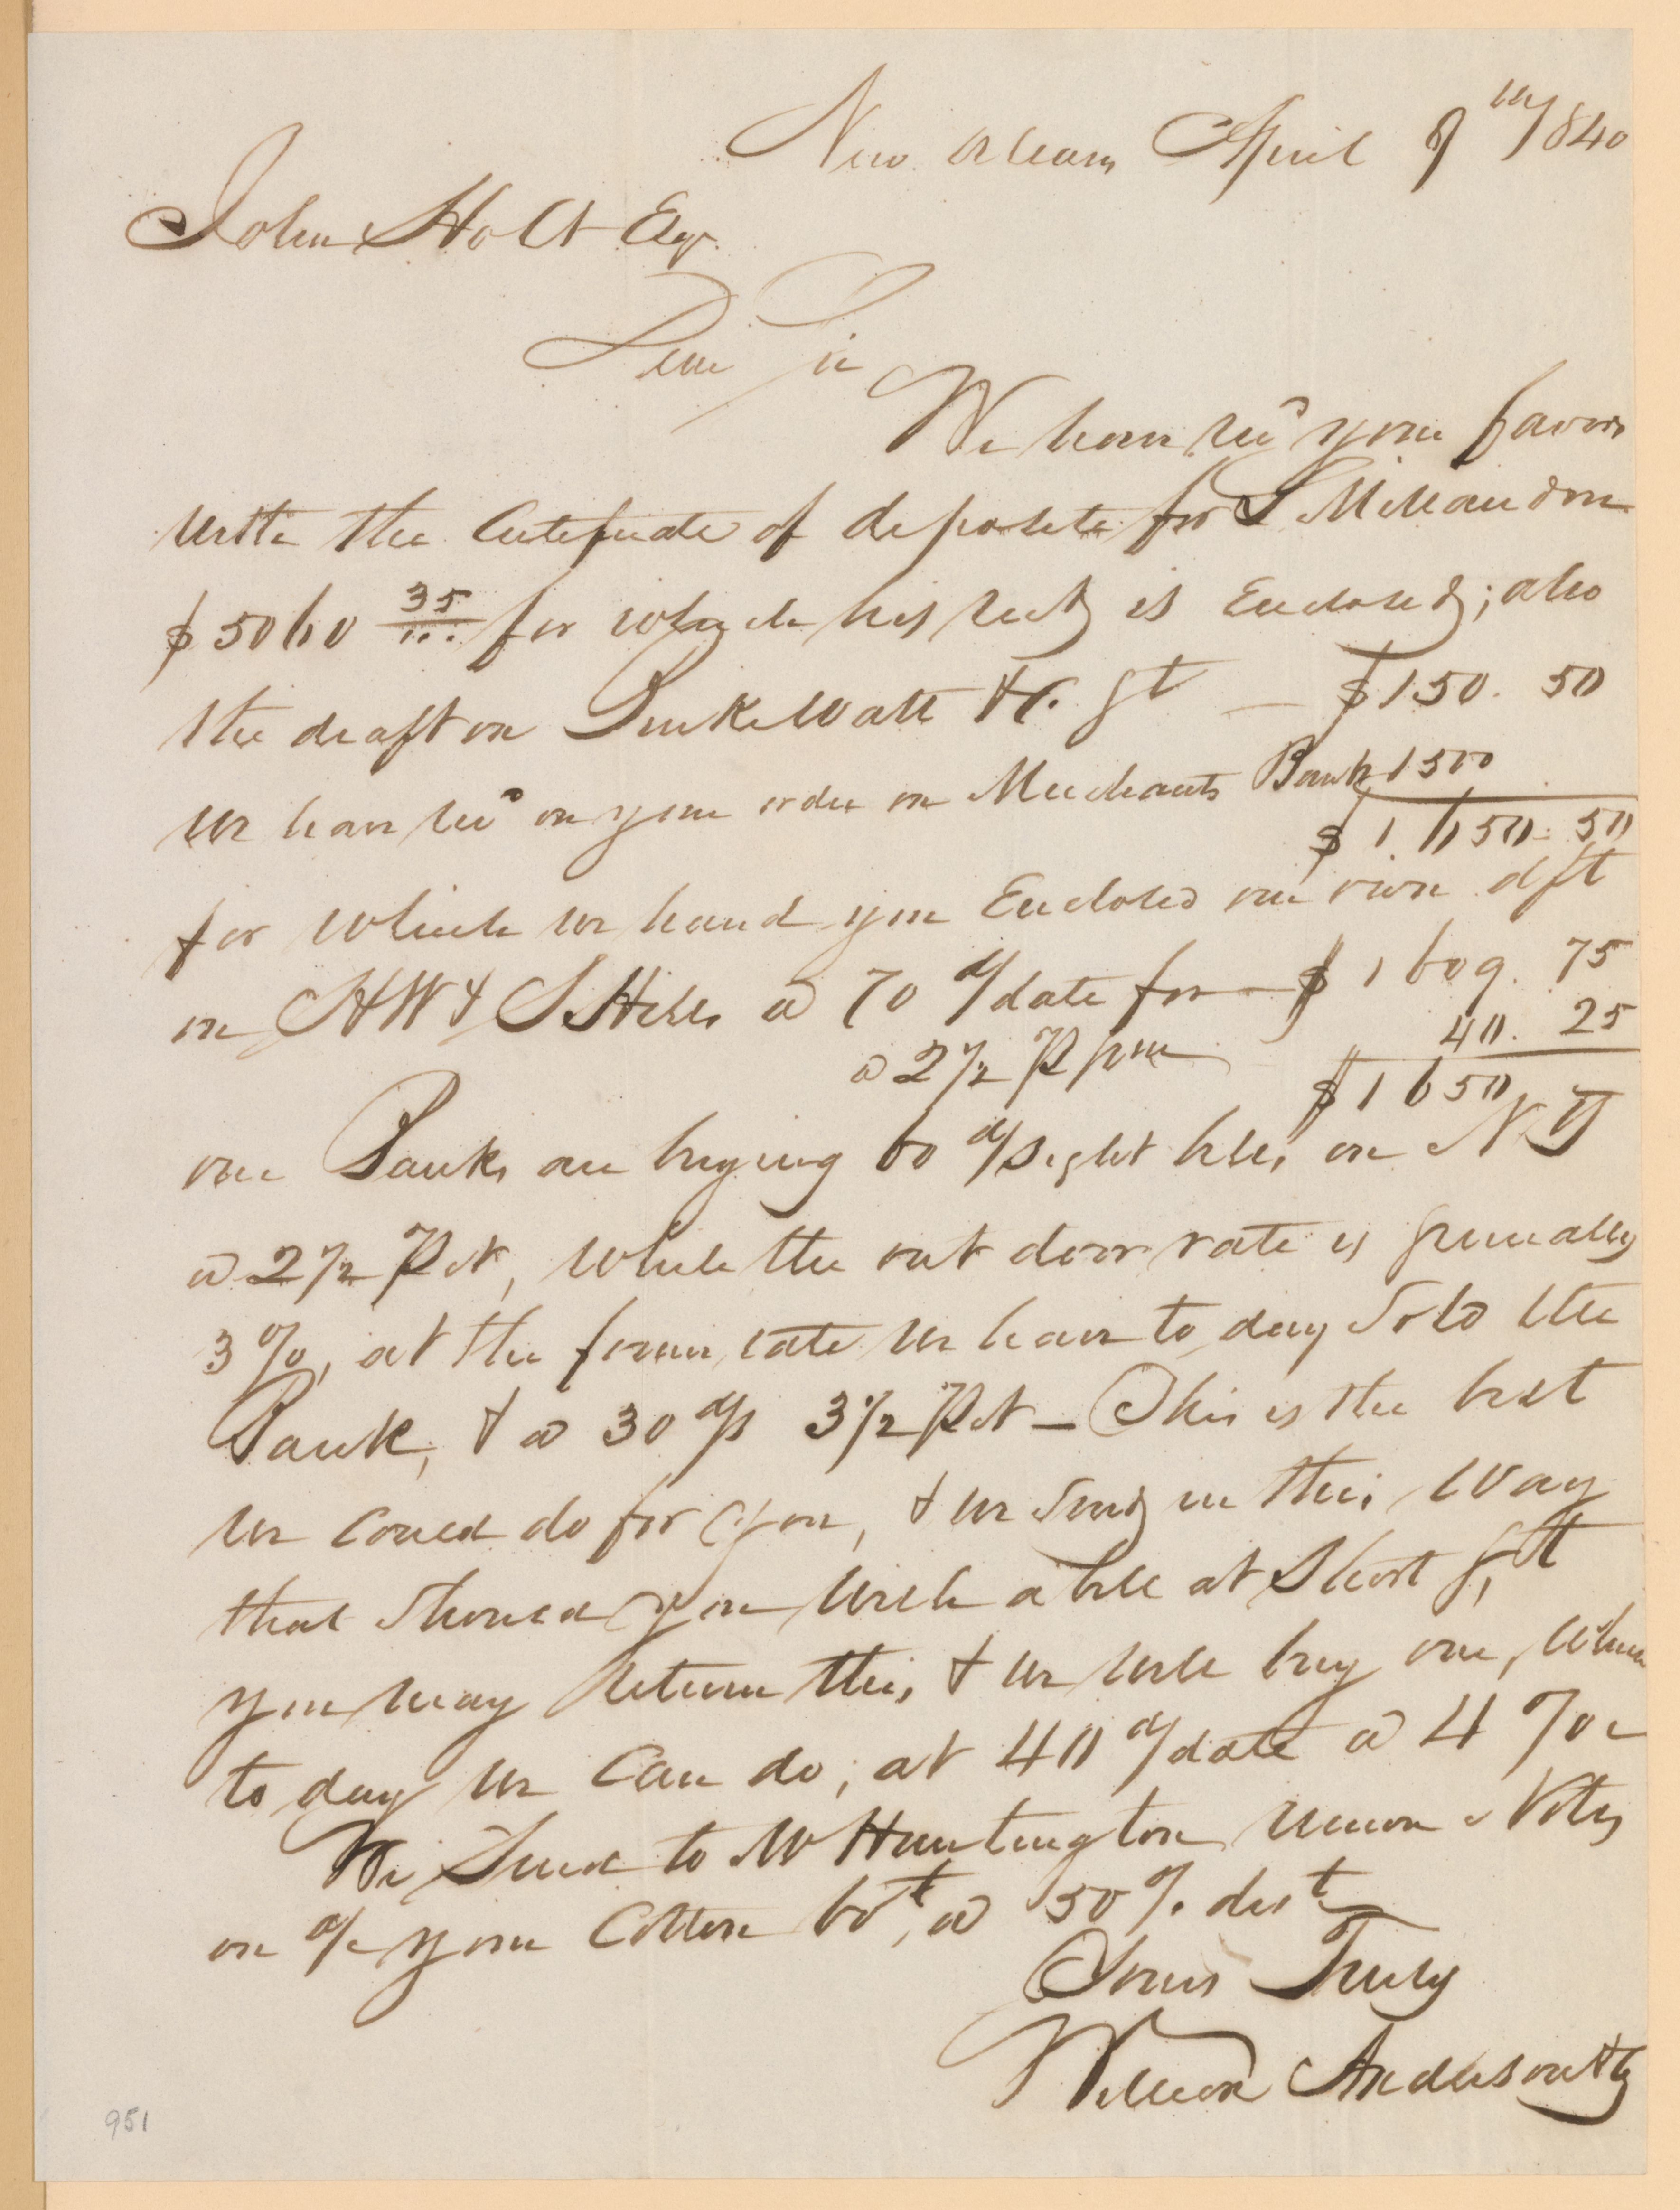 New Orleans April 9th 1840
John Holt Esqr.
Dear Sir
We have recd your favors
with the Certificate of deposite for L Millaudon
$5060 35/... for which his rect is Enclosed; also
the draft on Burke Watt & C. st — $150. 50
We have recd on your order on Merchants Bank 1500
$1.650. 50
for which we hand you Enclosed our own dft
on H W & S Hills @ 70 d/date for — $1609. 75
@ 2 1/2 P pm 40. 25
$1650
our Banks are buying 60 d/sight bills on N Y
@ 2 1/2 P Ct, while the out door rate is generally
3 %, at the former rate we have to day sold the
Bank, & @ 30 d/s 3 1/2 P Ct — This is the best
we could do for you, & we send in this way
that should you wish a bill at short st
you may return this, & we will buy one, when
to day we can do, at 40 d/date @ 4 %
We Send to W Huntington Union Notes
on a/c your Cotton bot, @ 50 % dist
Yours Truly
Anderson & Co
951